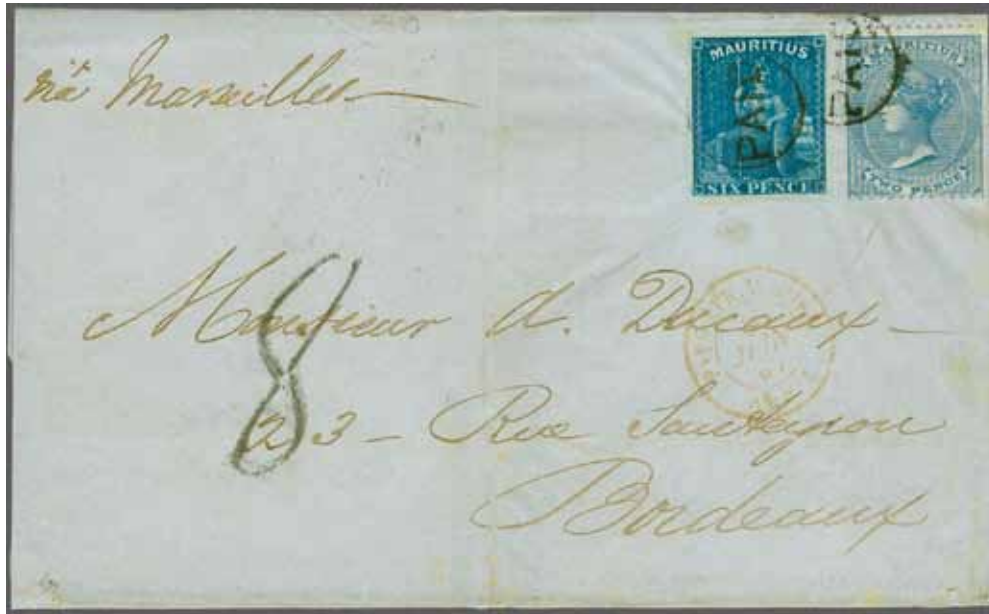 via Marseilles
MAURITIUS
PAID
SIX PENCE
PAID
MAURITIUS
TWO PENCE
8
Monsieur A. Ducaux
23 - Rue
Bordeaux